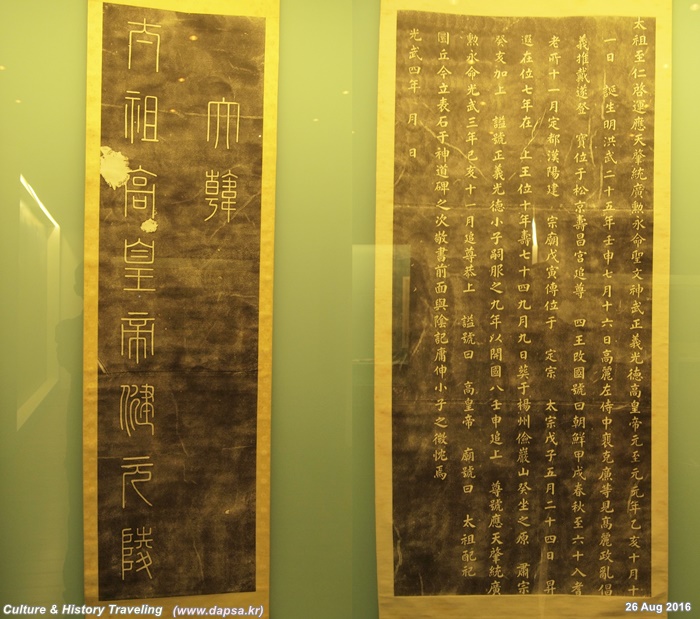 大韓
太祖高皇帝健元陵
太祖至仁啓運應天肇統廣勳永命聖文神武正義光德高皇帝元至元元年乙亥十月十
一日 誕生明洪武二十五年壬申七月十六日高麗左侍中裵克廉等見高麗政亂倡
義推戴遂登 寶位于松京壽昌宮追尊 四王改國號曰朝鮮甲戌春秋至六十入耆
老所十一月定都漢陽建 宗廟戊寅傳位于 定宗 太宗戊子五月二十四日 昇
遐在位七年在 上王位十年壽七十四九月九日葬于楊州儉巖山癸坐之原 肅宗
癸亥加上 謚號正義光德小子嗣服之九年以開國八壬申追上 尊號應天肇統廣
勳永命光武三年己亥十一月追尊恭上 謚號曰 高皇帝 廟號曰 太祖配祀
圜丘今立表石于神道碑之次敬書前面與陰記庸伸小子之微忱焉
光武四年 月 日
Culture & History Traveling (www.dapsa.kr)
26 Aug 2016